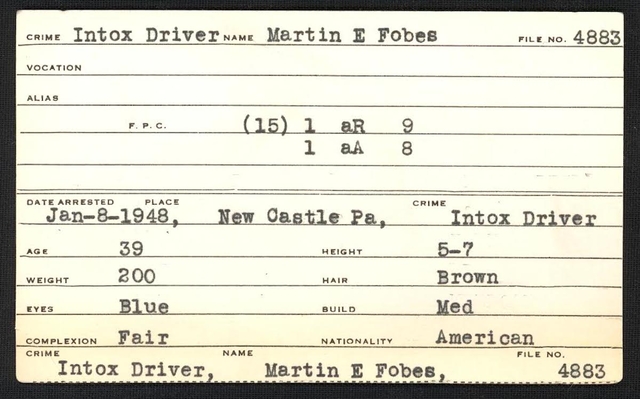 CRIME Intox Driver NAME Martin E Fobes FILE NO. 4883
VOCATION
ALIAS
F. P. C. (15) 1 aR 9
1 aA 8
DATE ARRESTED PLACE CRIME
Jan-8-1948, New Castle Pa, Intox Driver
AGE 39 HEIGHT 5-7
WEIGHT 200 HAIR Brown
EYES Blue BUILD Med
COMPLEXION Fair NATIONALITY American
CRIME NAME FILE NO.
Intox Driver, Martin E Fobes, 4883